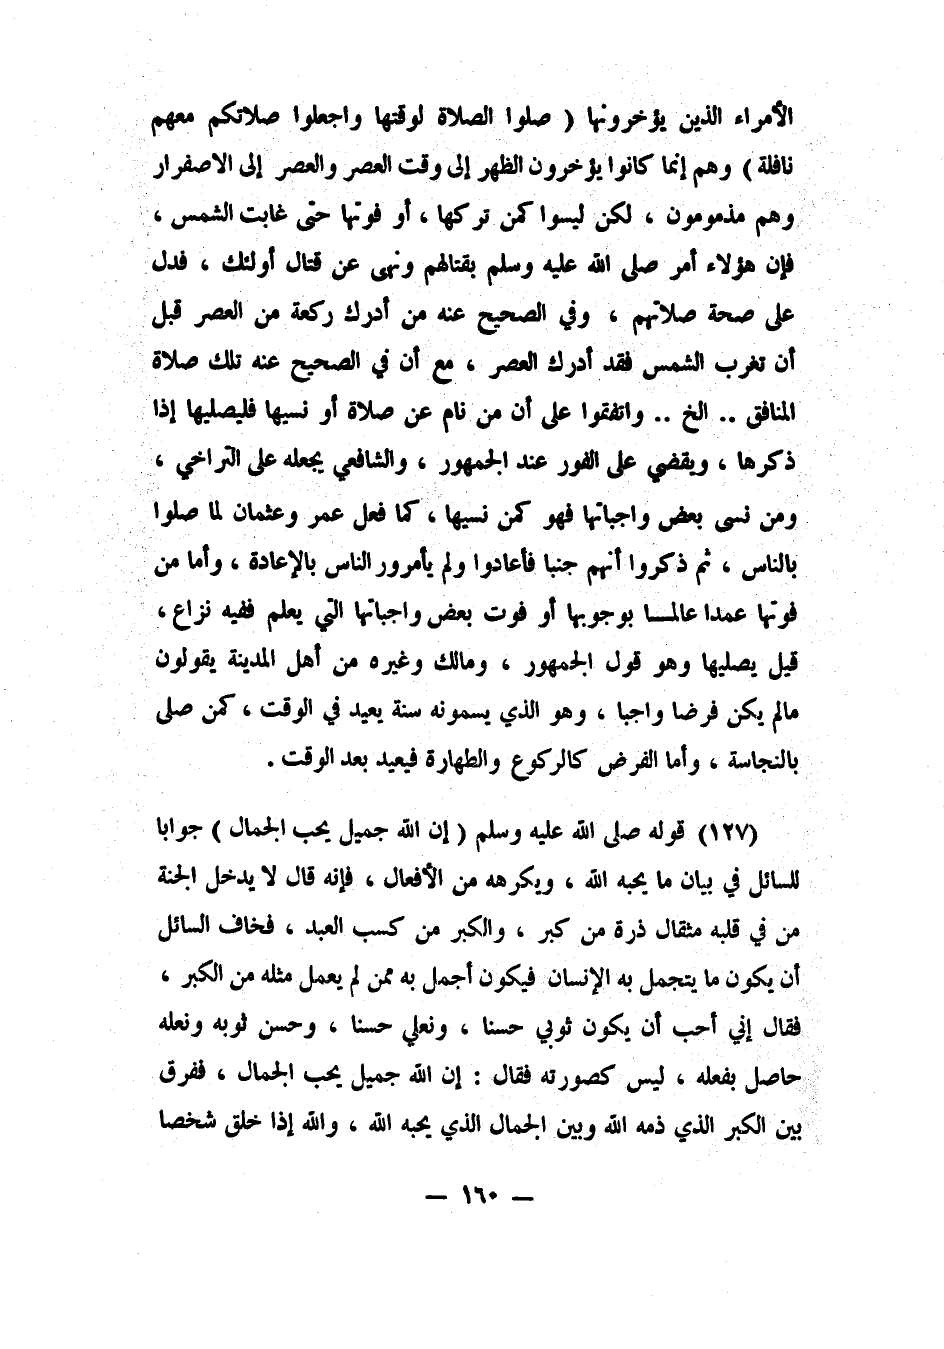 الأمراء الذين يؤخرونها ( صلوا الصلاة لوقتها واجعلوا صلاتكم معهم
نافلة ) وهم إنما كانوا يؤخرون الظهر إلى وقت العصر والعصر إلى الاصفرار
وهم مذمومون ، لكن ليسوا كمن تركها ، أو فوتها حتى غابت الشمس ،
فإن هؤلاء أمر صلى الله عليه وسلم بقتالهم ونهى عن قتال أولئك ، فدل
على صحة صلاتهم ، وفي الصحيح عنه من أدرك ركعة من العصر قبل
أن تغرب الشمس فقد أدرك العصر ، مع أن في الصحيح عنه تلك صلاة
المنافق .. الخ .. واتفقوا على أن من نام عن صلاة أو نسيها فليصليها إذا
ذكرها ، ويقضي على الفور عند الجمهور ، والشافعي يجعله على التراخي ،
ومن نسى بعض واجباتها فهو كمن نسيها ، كما فعل عمر وعثمان لما صلوا
بالناس ، ثم ذكروا أنهم جنبا فأعادوا ولم يأمرور الناس بالإعادة ، وأما من
فوتها عمدا عالمـا بوجوبها أو فوت بعض واجباتها التي يعلم ففيه نزاع ،
قيل يصليها وهو قول الجمهور ، ومالك وغيره من أهل المدينة يقولون
مالم يكن فرضا واجبا ، وهو الذي يسمونه سنة يعيد في الوقت ، كمن صلى
بالنجاسة ، وأما الفرض كالركوع والطهارة فيعيد بعد الوقت .
(١٢٧) قوله صلى الله عليه وسلم ( إن الله جميل يحب الجمال ) جوابا
للسائل في بيان ما يحبه الله ، ويكرهه من الأفعال ، فإنه قال لا يدخل الجنة
من في قلبه مثقال ذرة من كبر ، والكبر من كسب العبد ، فخاف السائل
أن يكون ما يتجمل به الإنسان فيكون أجمل به ممن لم يعمل مثله من الكبر ،
فقال إني أحب أن يكون ثوبي حسنا ، ونعلي حسنا ، وحسن ثوبه ونعله
حاصل بفعله ، ليس كصورته فقال : إن الله جميل يحب الجمال ، ففرق
بين الكبر الذي ذمه الله وبين الجمال الذي يحبه الله ، والله إذا خلق شخصا
— ١٦٠ —